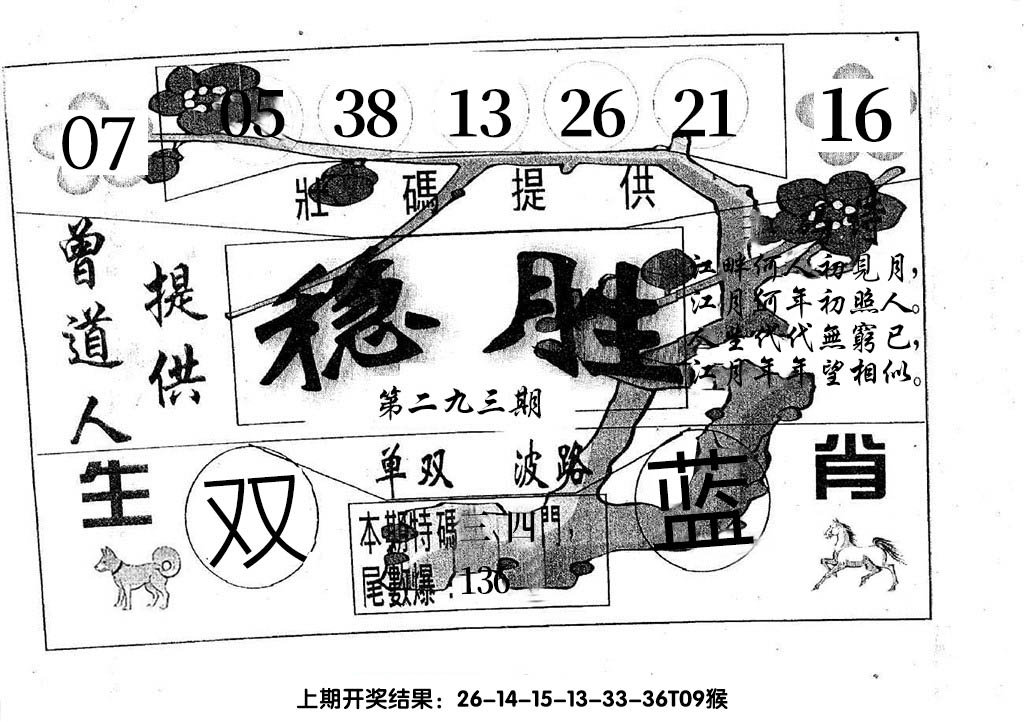 07 05 38 13 26 21 16
壯碼提供
曾道人
提供
稳胜
第二九三期
江畔何人初見月,
江月何年初照人。
人生代代無窮已,
江月年年望相似。
生肖
单双 波路
双
蓝
本期特碼三、四門,
尾數爆:136
上期开奖结果：26-14-15-13-33-36T09猴